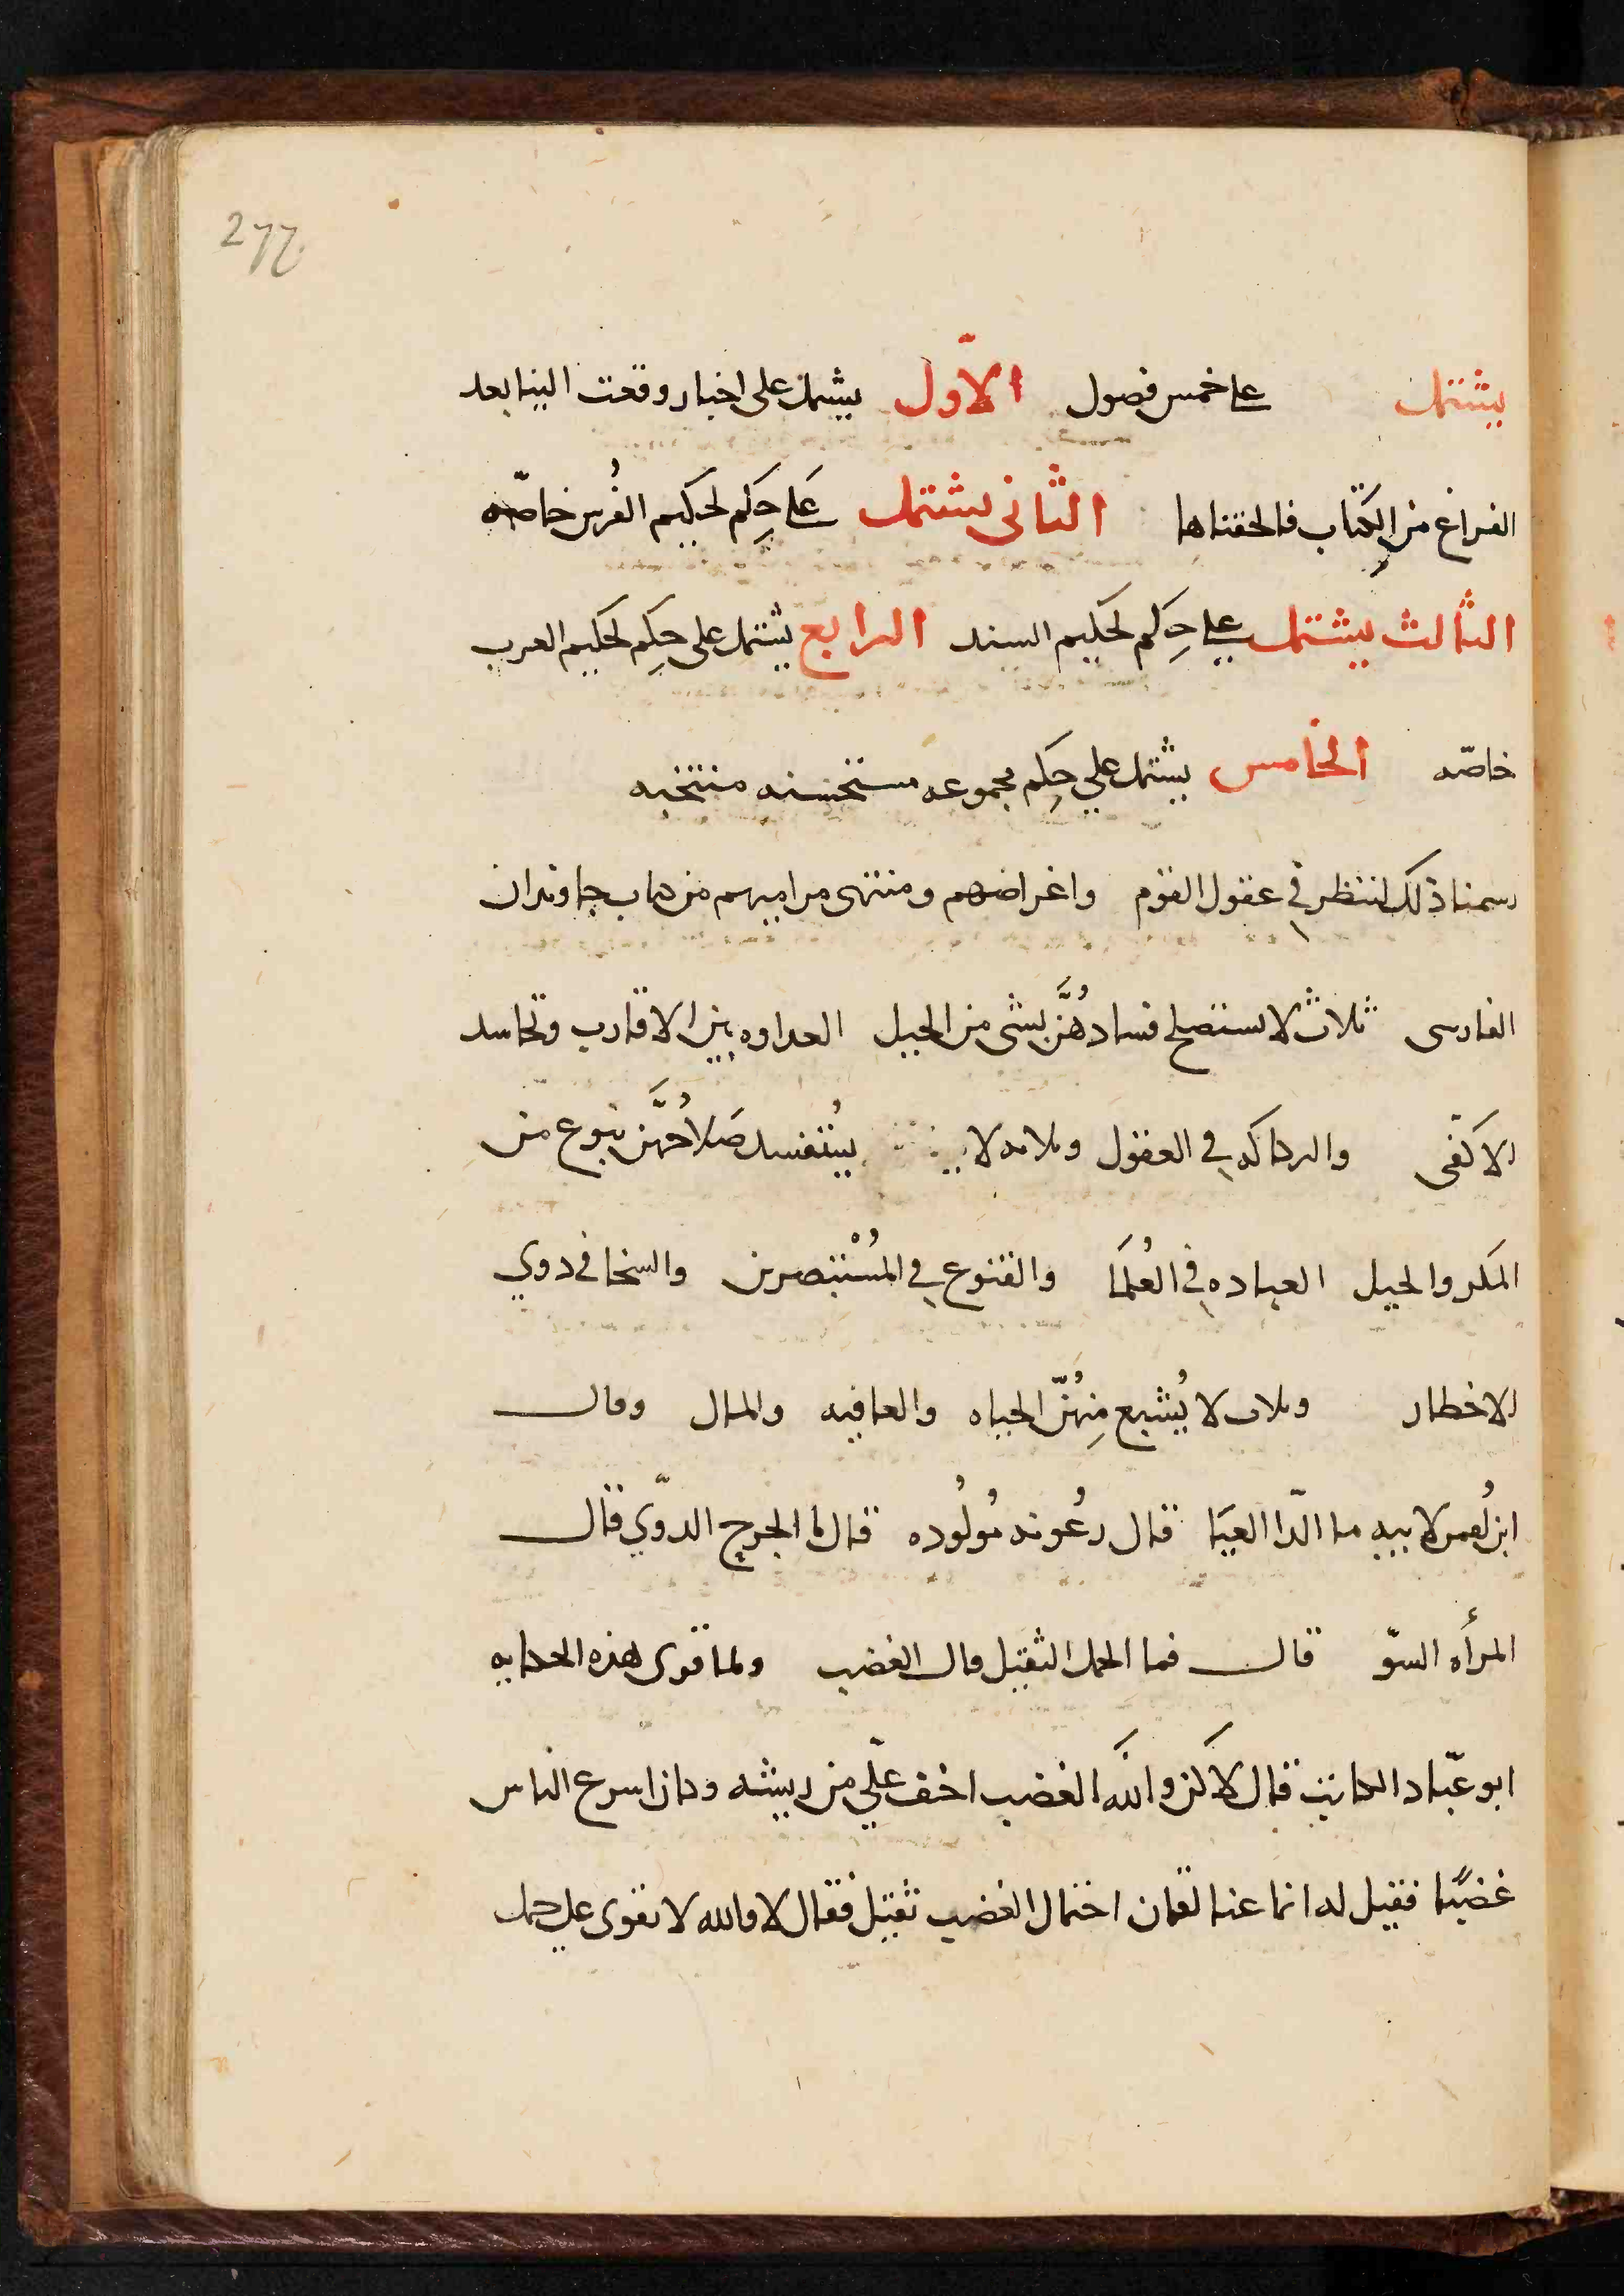 277
يشتمل على خمس فصول الاوّل يشتمل على اخبار وقعت الينا بعد
الفراغ من الكتاب فالحقناها الثاني يشتمل على حِكم لحكيم الفُرس خاصّه
الثالث يشتمل على حِكم لحكيم السند الرابع يشتمل على حِكم لحكيم العرب
خاصّه الخامس يشتمل على حِكم مجموعه مستحسنه منتخبه
رسمنا ذلك لننظر في عقول القوم واغراضهم ومنتهى مراميهم من كتاب جاوندان
الفارسي ثلاث لا تستصلح فسادهُنَّ بشي من الحيل العداوه بين الاقارب وتحاسد
الاكفى والركاكه في العقول وثلاثه لا يُستفسد صَلاحُهنَّ بنوع من
المكر والحيل العباده في العُلمَا والقنوع في المُسْتبصرين والسخا في ذوي
الاخطار وثلاث لا يُشبع مِنهُنّ الحياه والعافيه والمال وقال
ابن لُعمر لابيه ما الدّا العيَا قال رعُونه مُولُوده قال فما الجرح الدوّي قال
المرأه السوّ قال فما الحمل الثقيل قال الغضب ولما قوى هذه الحكايه
ابو عبّاد الكاتب قال لاكن والله الغضب اخف علّي من ريشه وكان اسرع الناس
غضبًا فقيل له انما عنا لقمان احتمال الغضب ثقيل فقال لا والله لا يقوى على حمل